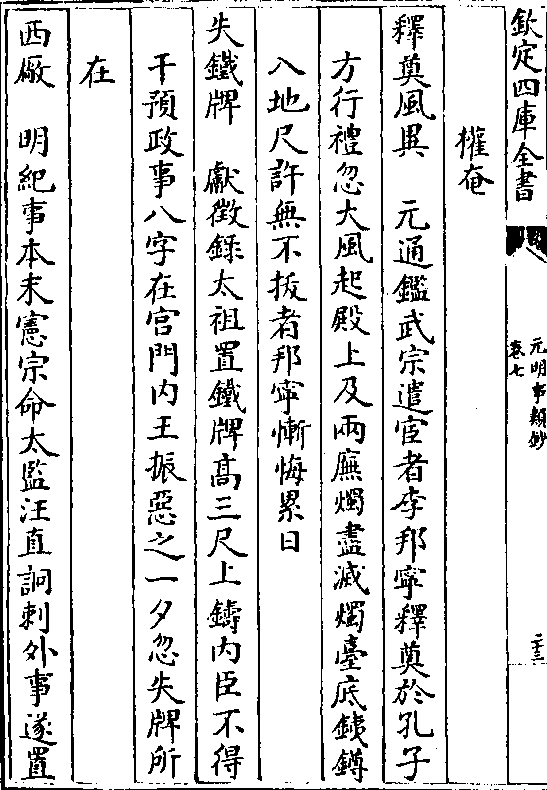 欽定四庫全書
元明事類鈔
卷七
二十三
權奄
釋奠風異　元通鑑武宗遣宦者李邦寧釋奠於孔子
方行禮忽大風起殿上及兩廡燭盡滅燭臺底鐵鐏
入地尺許無不拔者邦寧慚悔累日
失鐵牌　獻徵錄太祖置鐵牌高三尺上鑄内臣不得
干預政事八字在宫門内王振惡之一夕忽失牌所
在
西厰　明紀事本末憲宗命太監汪直詗刺外事遂置